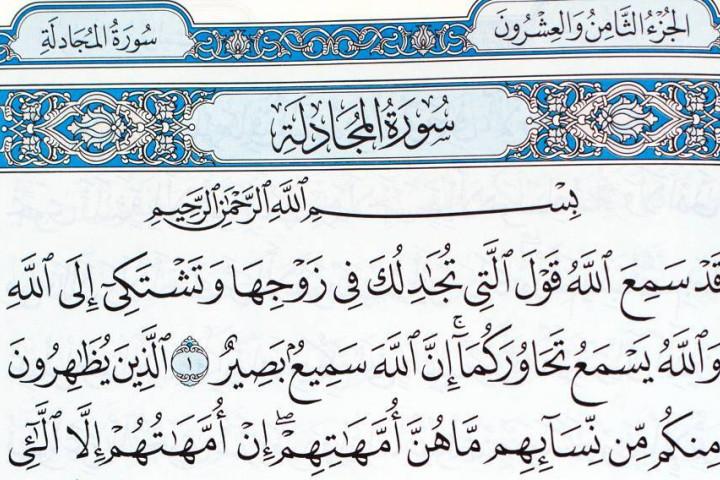 الجُزْءُ الثَّامِنُ وَالعِشْرُونَ
سُورَةُ المُجَادلَةِ
سُورَةُ المُجَادلَةِ
بِسْمِ اللَّهِ الرَّحْمَٰنِ الرَّحِيمِ
قَدْ سَمِعَ ٱللَّهُ قَوْلَ ٱلَّتِي تُجَٰدِلُكَ فِي زَوْجِهَا وَتَشْتَكِيٓ إِلَى ٱللَّهِ
وَٱللَّهُ يَسْمَعُ تَحَاوُرَكُمَآۚ إِنَّ ٱللَّهَ سَمِيعُۢ بَصِيرٌ ١ ٱلَّذِينَ يُظَٰهِرُونَ
مِنكُم مِّن نِّسَآئِهِم مَّا هُنَّ أُمَّهَٰتِهِمْۖ إِنْ أُمَّهَٰتُهُمْ إِلَّا ٱلَّٰٓـِٔي